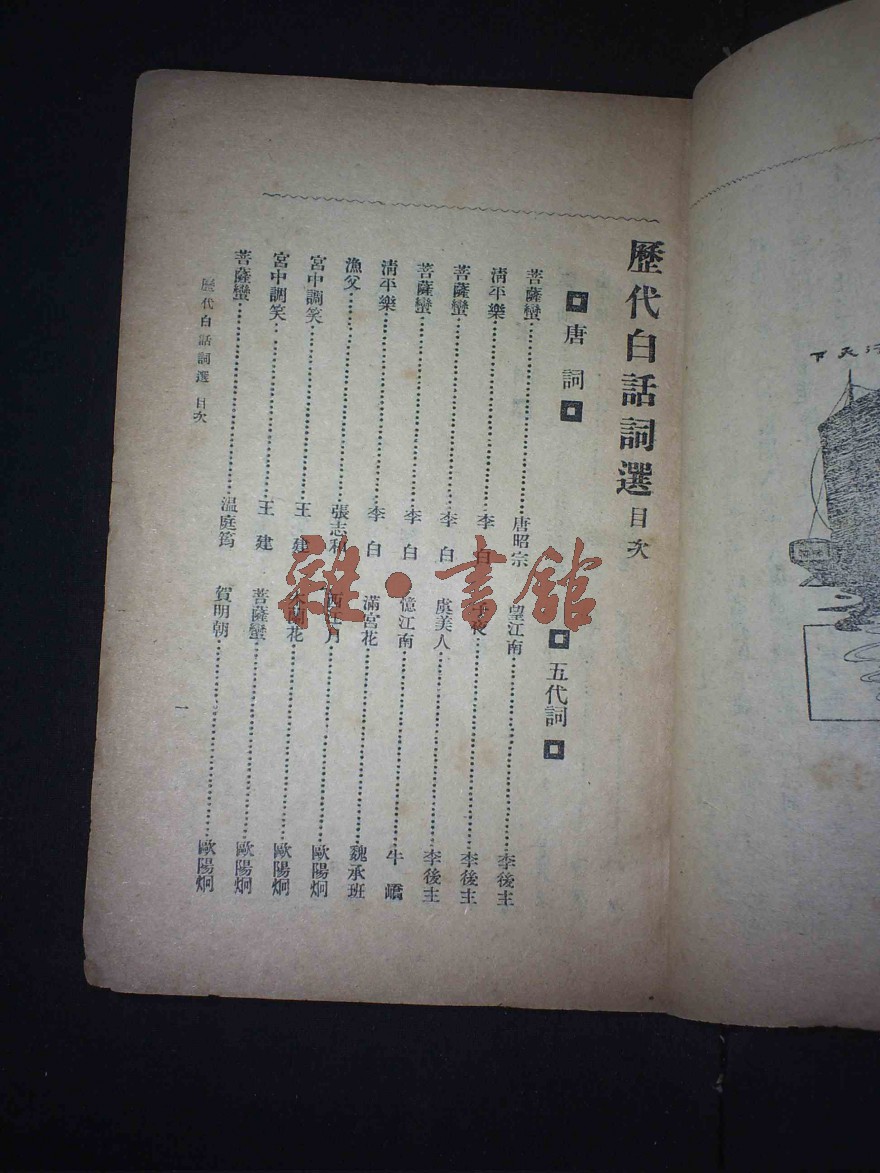 歷代白話詞選 目次
唐詞
菩薩蠻⋯⋯唐昭宗
淸平樂⋯⋯李 白
菩薩蠻⋯⋯李 白
菩薩蠻⋯⋯李 白
淸平樂⋯⋯李 白
漁父⋯⋯張志和
宮中調笑⋯⋯王 建
宮中調笑⋯⋯王 建
菩薩蠻⋯⋯温庭筠
五代詞
望江南⋯⋯李後主
⋯⋯李後主
虞美人⋯⋯李後主
憶江南⋯⋯牛 嶠
滿宮花⋯⋯魏承班
西江月⋯⋯歐陽炯
木蘭花⋯⋯歐陽炯
菩薩蠻⋯⋯歐陽炯
賀明朝⋯⋯歐陽炯
歷代白話詞選 目次
一
雜·書館